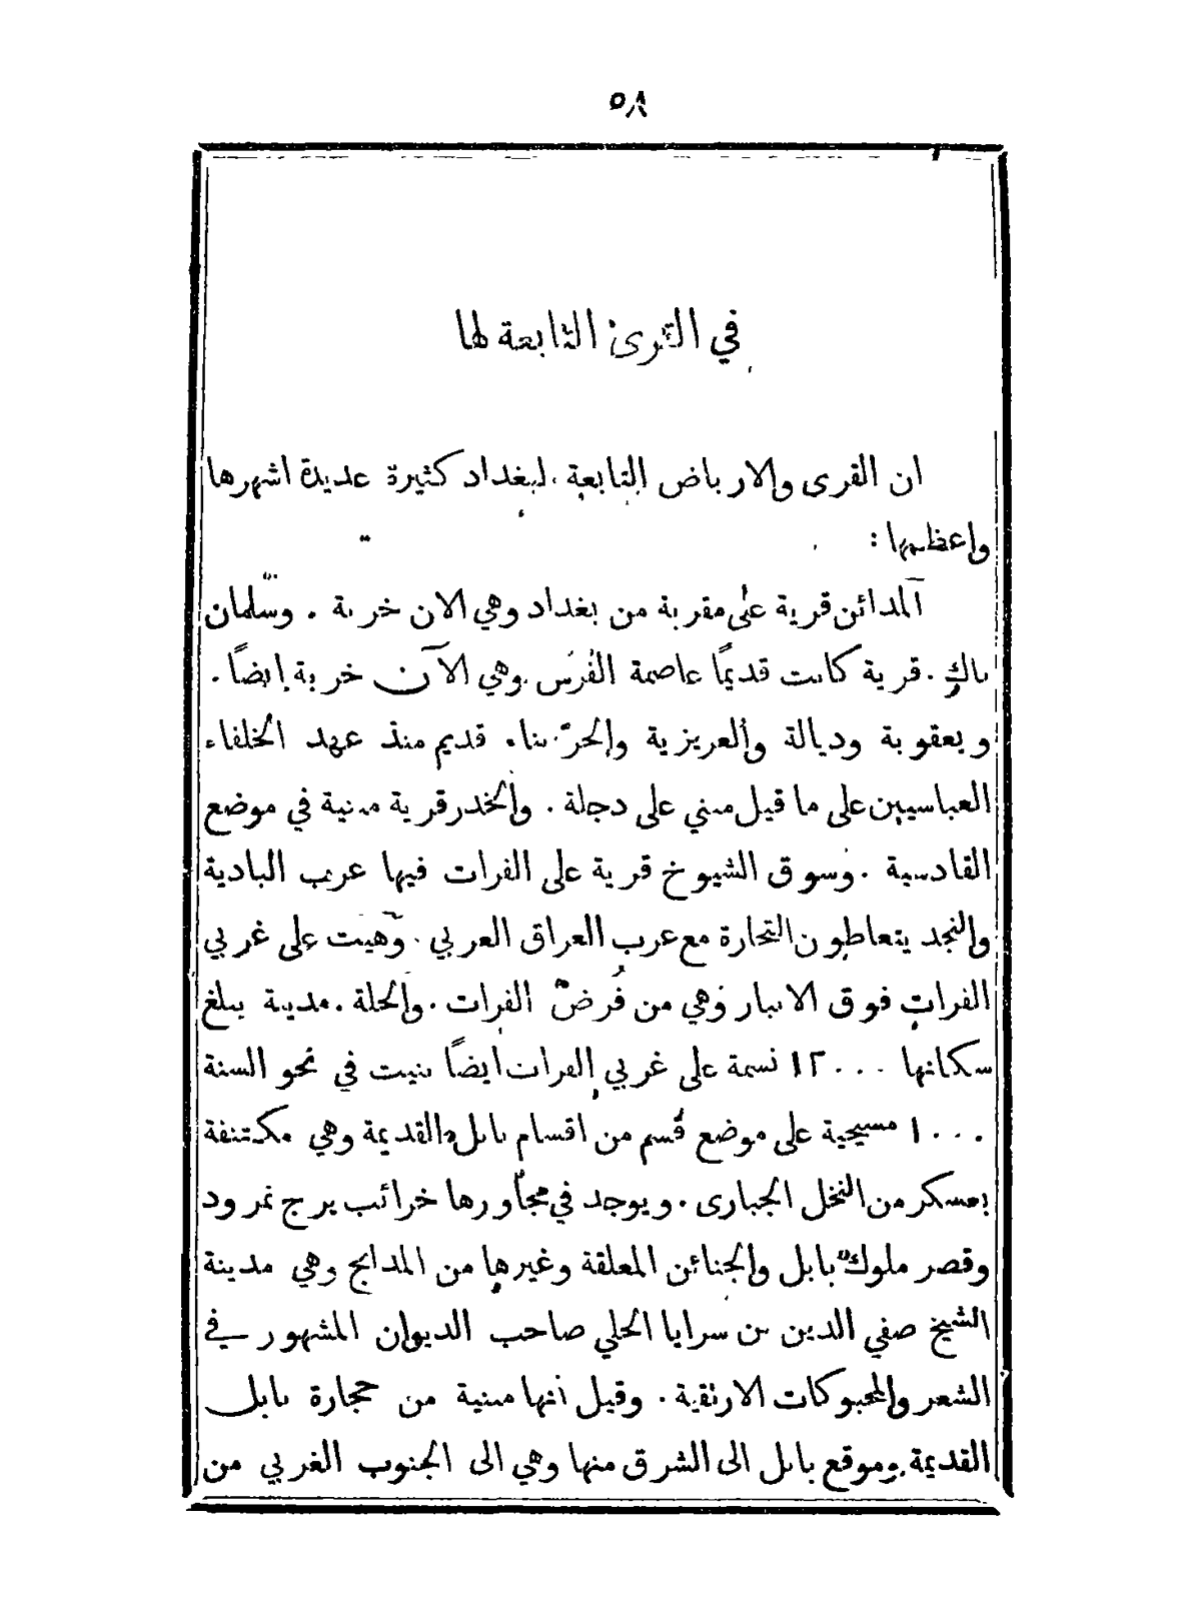 ٥٨
في القرى التابعة لها
ان القرى والارباض التابعة لبغداد كثيرة عديدة اشهرها
واعظمها :
المدائن قرية على مقربة من بغداد وهي الان خربة . وسلمان
باك . قرية كانت قديمًا عاصمة الفُرس وهي الآن خربة ايضًا .
وبعقوبة وديالة والعزيزية والحرّ بناء قديم منذ عهد الخلفاء
العباسيين على ما قيل مبني على دجلة . والخدر قرية مبنية في موضع
القادسية . وسوق الشيوخ قرية على الفرات فيها عرب البادية
والنجد يتعاطون التجارة مع عرب العراق العربي . وهيت على غربي
الفرات فوق الانبار وهي من فُرض الفرات . والحلة . مدينة يبلغ
سكانها ١٢٠٠٠ نسمة على غربي الفرات ايضًا بنيت في نحو السنة
١٠٠٠ مسيحية على موضع قسم من اقسام بابل القديمة وهي مكتنفة
بمعسكر من النخل الجبارى . ويوجد في مجاورها خرائب برج نمرود
وقصر ملوك بابل والجنائن المعلقة وغيرها من المدابج وهي مدينة
الشيخ صفي الدين بن سرايا الحلي صاحب الديوان المشهور في
الشعر والمحبوكات الارتقية . وقيل انها مبنية من حجارة بابل
القديمة وموقع بابل الى الشرق منها وهي الى الجنوب الغربي من